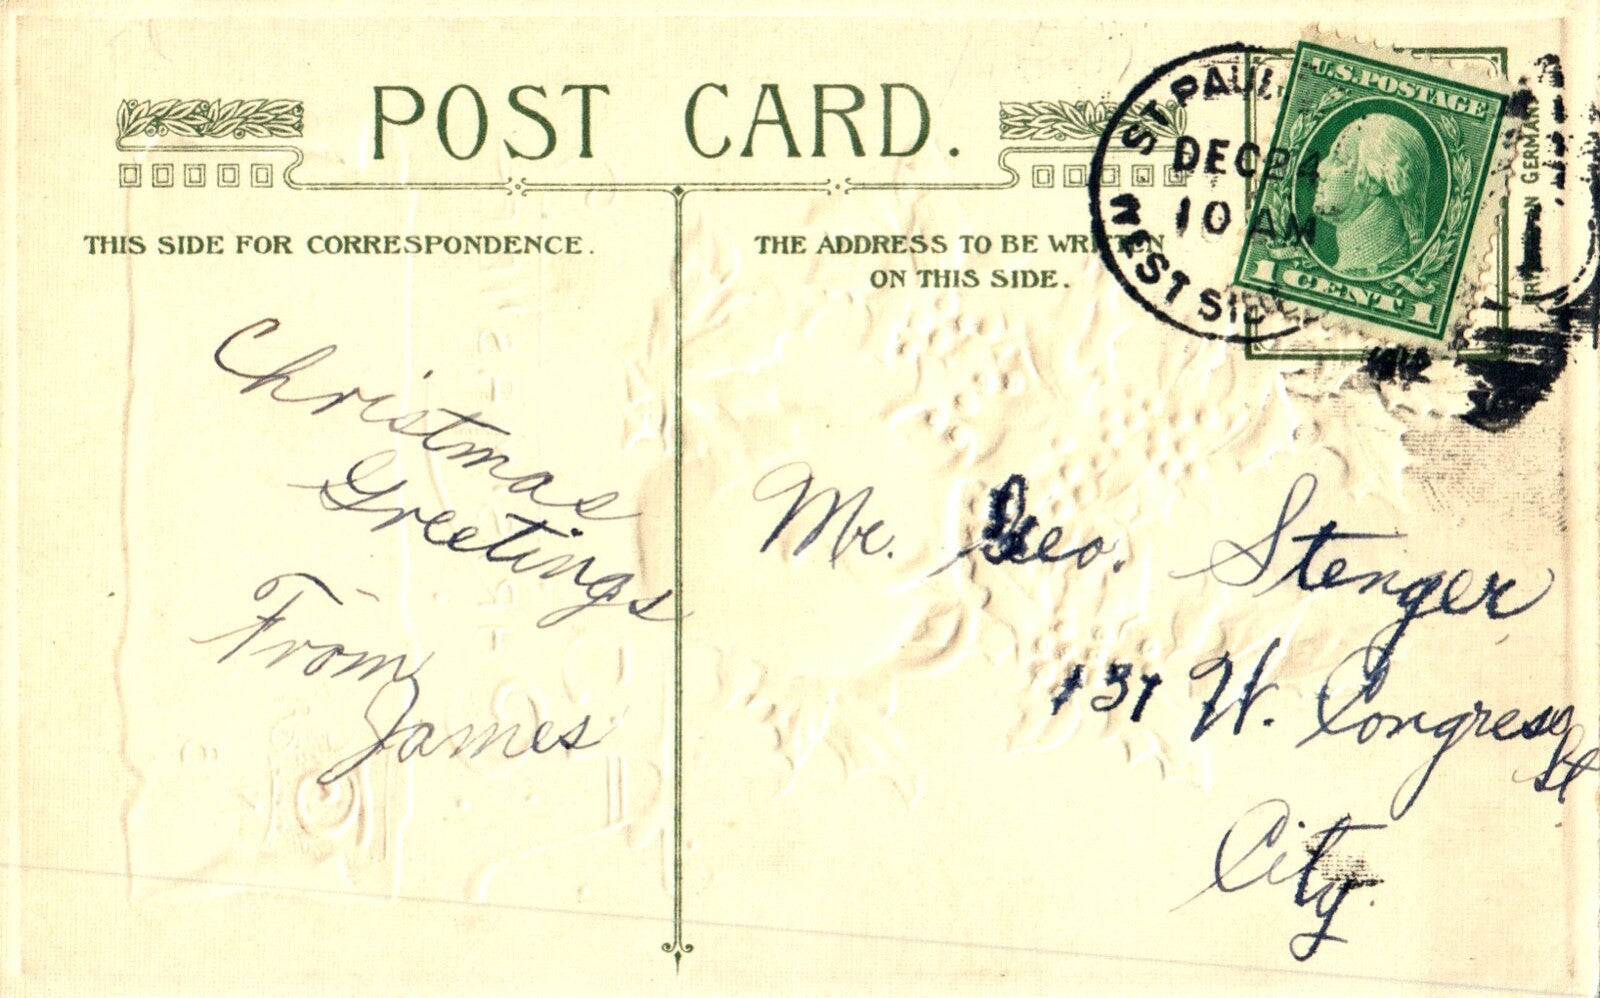 POST CARD.
THIS SIDE FOR CORRESPONDENCE.
THE ADDRESS TO BE WRITTEN
ON THIS SIDE.
ST PAUL
DEC 24
10 AM
WEST SIDE
U.S. POSTAGE
1 CENT 1
IN GERMANY
Christmas
Greetings
From
James
Mr. Geo. Stenger
137 W. Congress
St
City